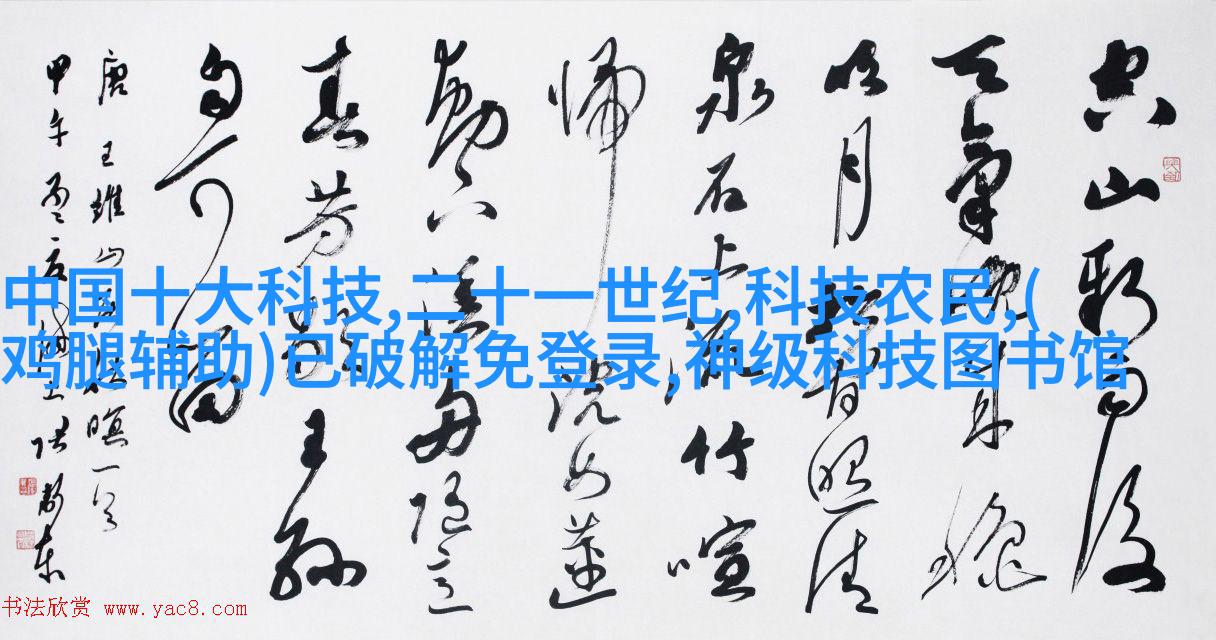 空山新雨後
天氣晚来秋
明月松間照清
泉石上流竹喧
歸浣女蓮
動下漁舟隨意
春芳歇王孫
自可留
唐王維山居秋暝一首
甲午孟夏
中国十大科技,二十一世纪,科技农民,(
鸡腿辅助)已破解免登录,神级科技图书馆
书法欣赏 www.yac8.com